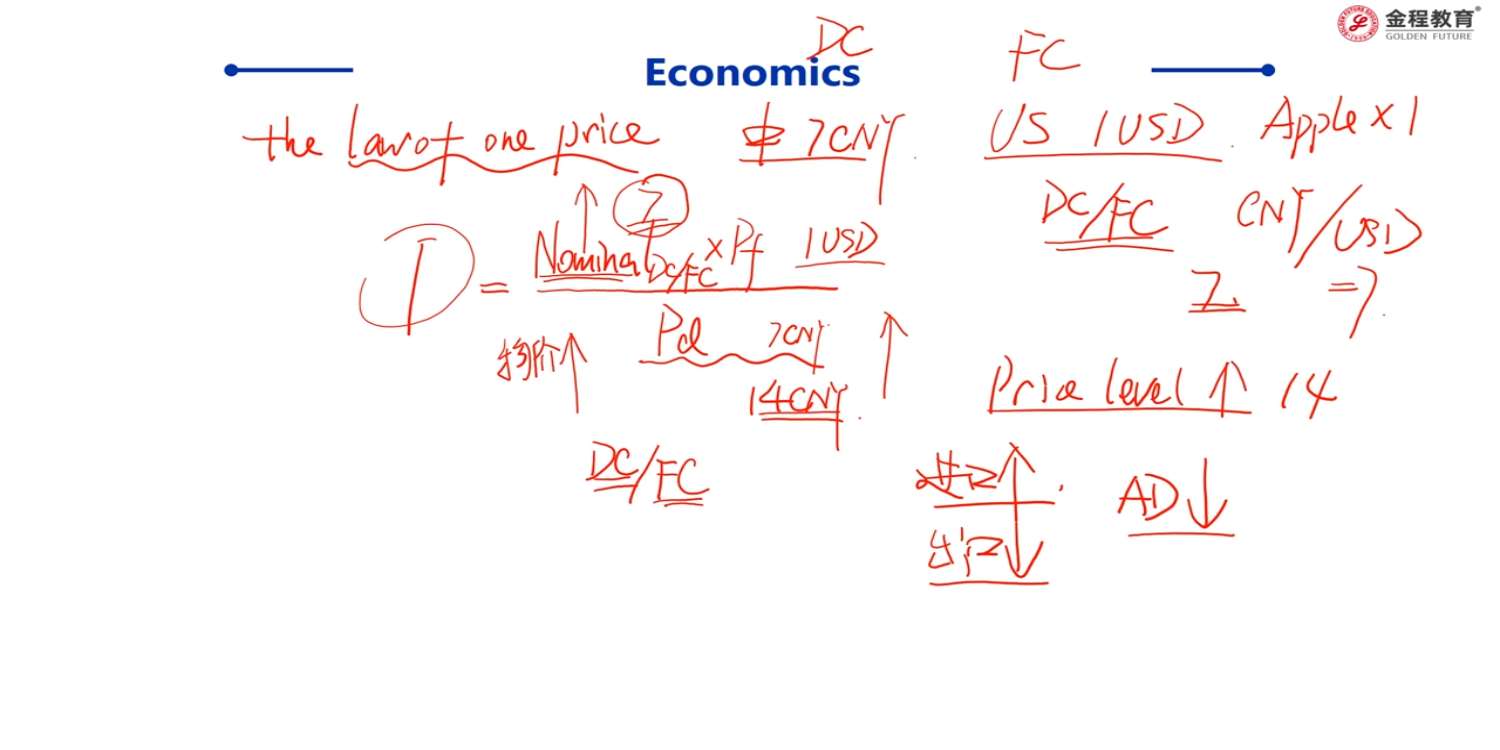 金程教育
GOLDEN FUTURE
DC
FC
Economics
the law of one price
中 7CNY
US 1USD
Apple × 1
DC/FC
CNY/USD
7
=7
1 =
7
Nominal DC/FC × Pf
1USD
Pd
7CNY
物价↑
14CNY
↑
Price level ↑ 14
DC/FC
进口↑
AD↓
出口↓